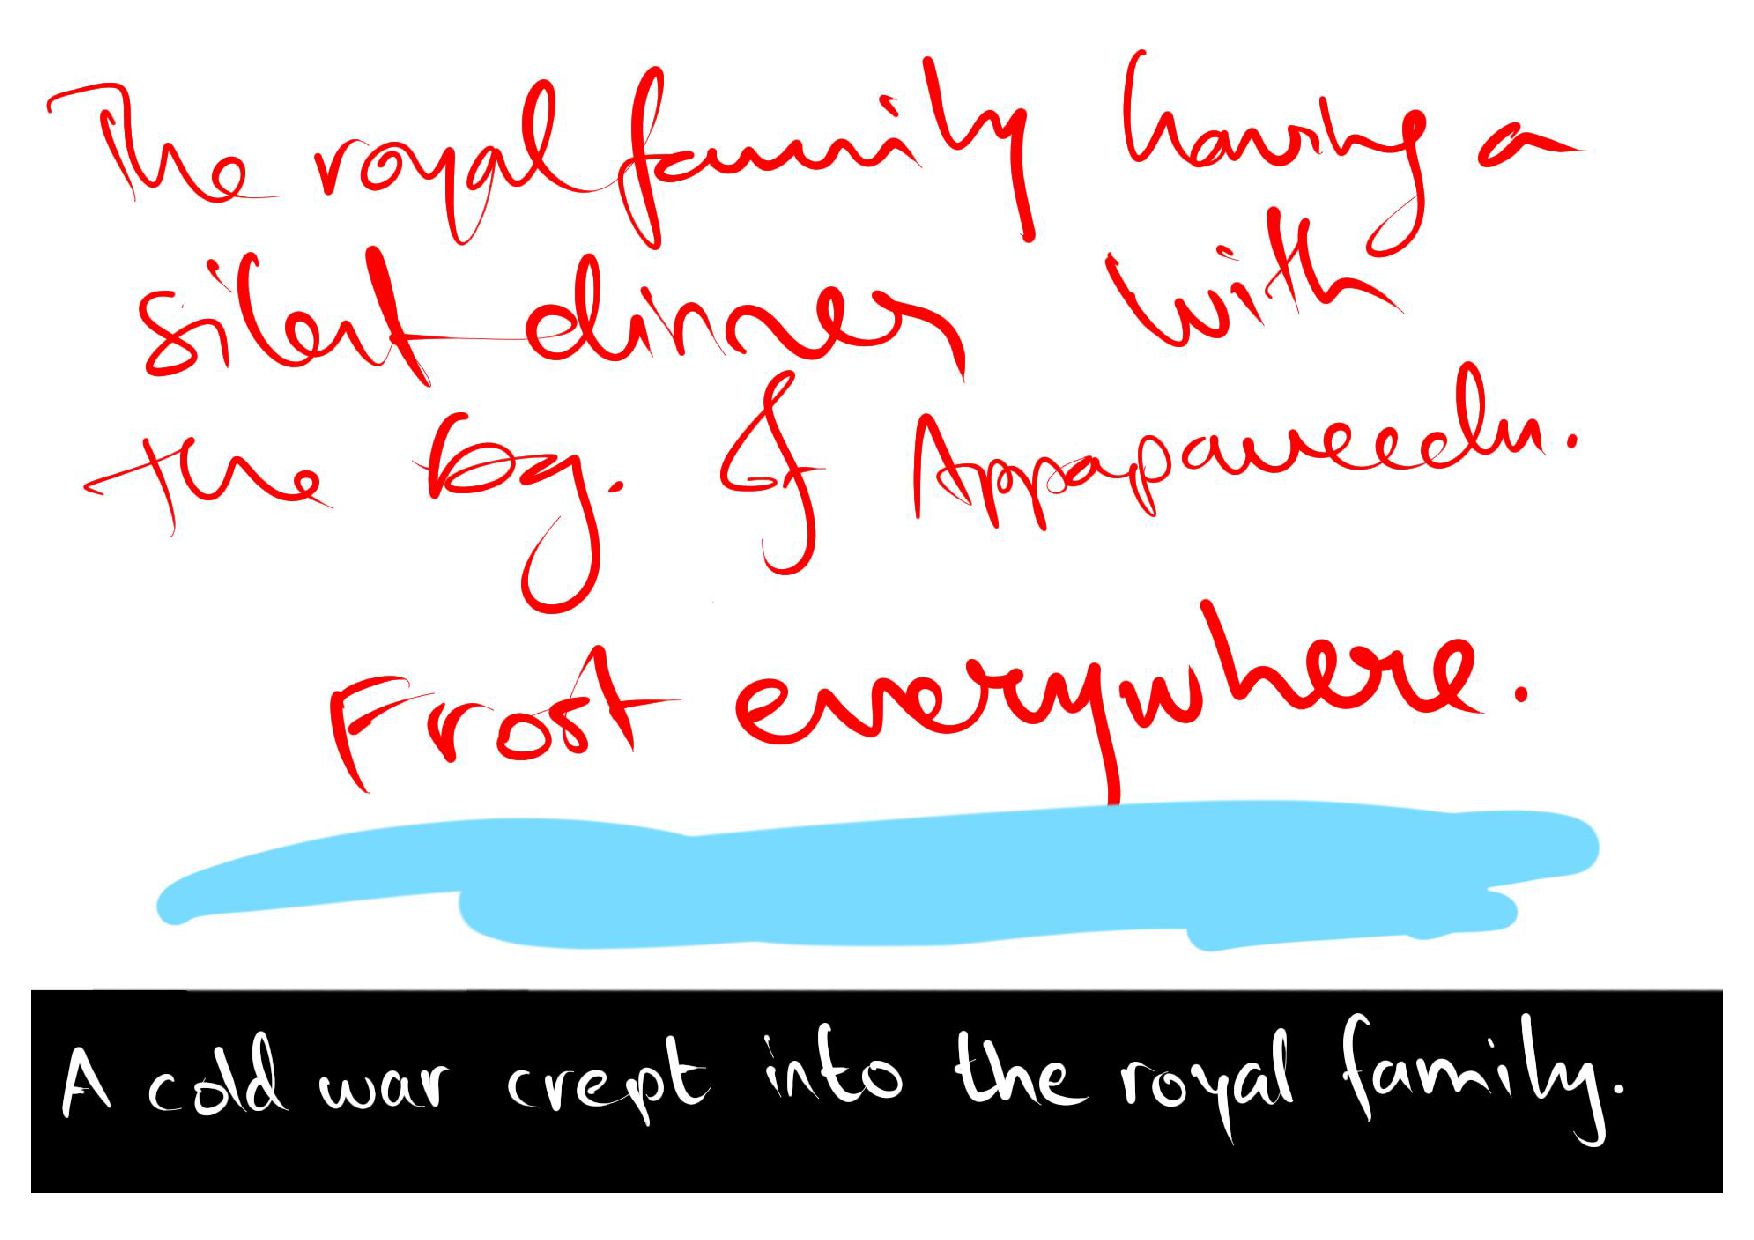 The royal family having a
silent dinner with
the bg. of Appapaveedu.
Frost everywhere.
A cold war crept into the royal family.